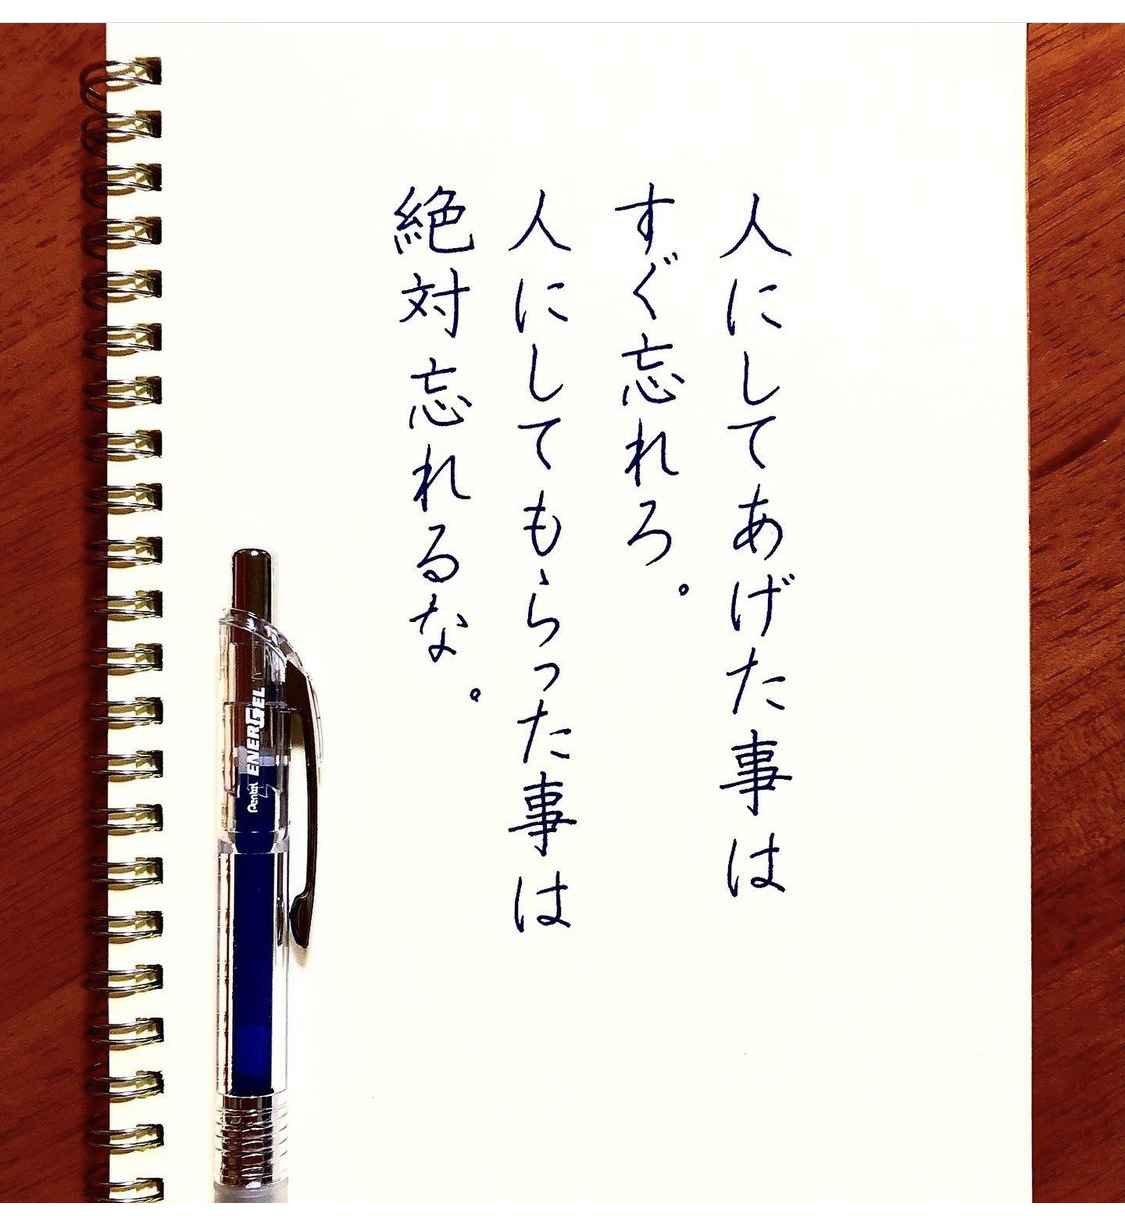 人にしてあげた事は
すぐ忘れろ。
人にしてもらった事は
絶対忘れるな。
Pentel ENERGEL